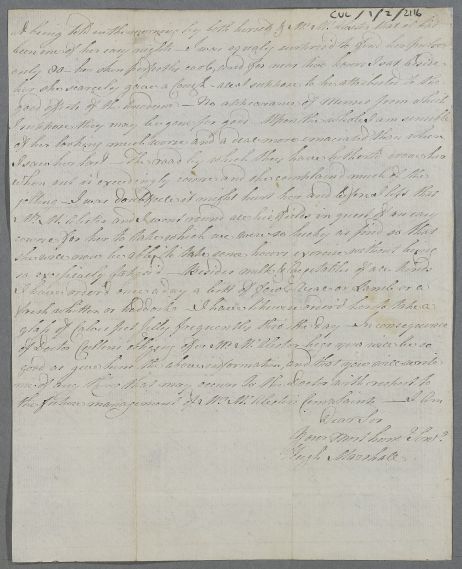 CUL/1/2/2116
being told in the morning by both herself & Mr M. that it had
been one of her easy nights I was equaly surprised to find her pulse
only 80 her skin perfectly cool, and for near two hours I sat beside
her she scarcely gave a Cough all I suppose to be attributed to the
good effects of the No appearance of Menses from which
I suppose they may be gone for good Upon the whole I am sensible
of her looking much worse and a deal more emaciated than when
I saw her last The road by which they have hitherto drove her
when out is exceedingly coarse and she complained much of the
jolting I was it might hurt her and before I left this
Mr M and I went round all his fields in quest of an easy
course for her to take which we were so lucky as find so that
she may now be able to take some hours exercise without being
so exceſsively fatigued Besides milk & Vegetables of all kinds
I have order'd once a day a bitt of Veal or Lamb or a
fresh whitten or haddock I have likewise order'd her to take a
glaſs of Calves foot jelly frequently thro the day In consequence
of Doctor Cullens offer Mr M. hopes you will be so
good as give him the above information and that you will write
me of any thing that may occur to the Doctor with respect to
the future management of Mrs M. Complaints I am
Dear Sir
Your most hum Servt
Hugh Marshall